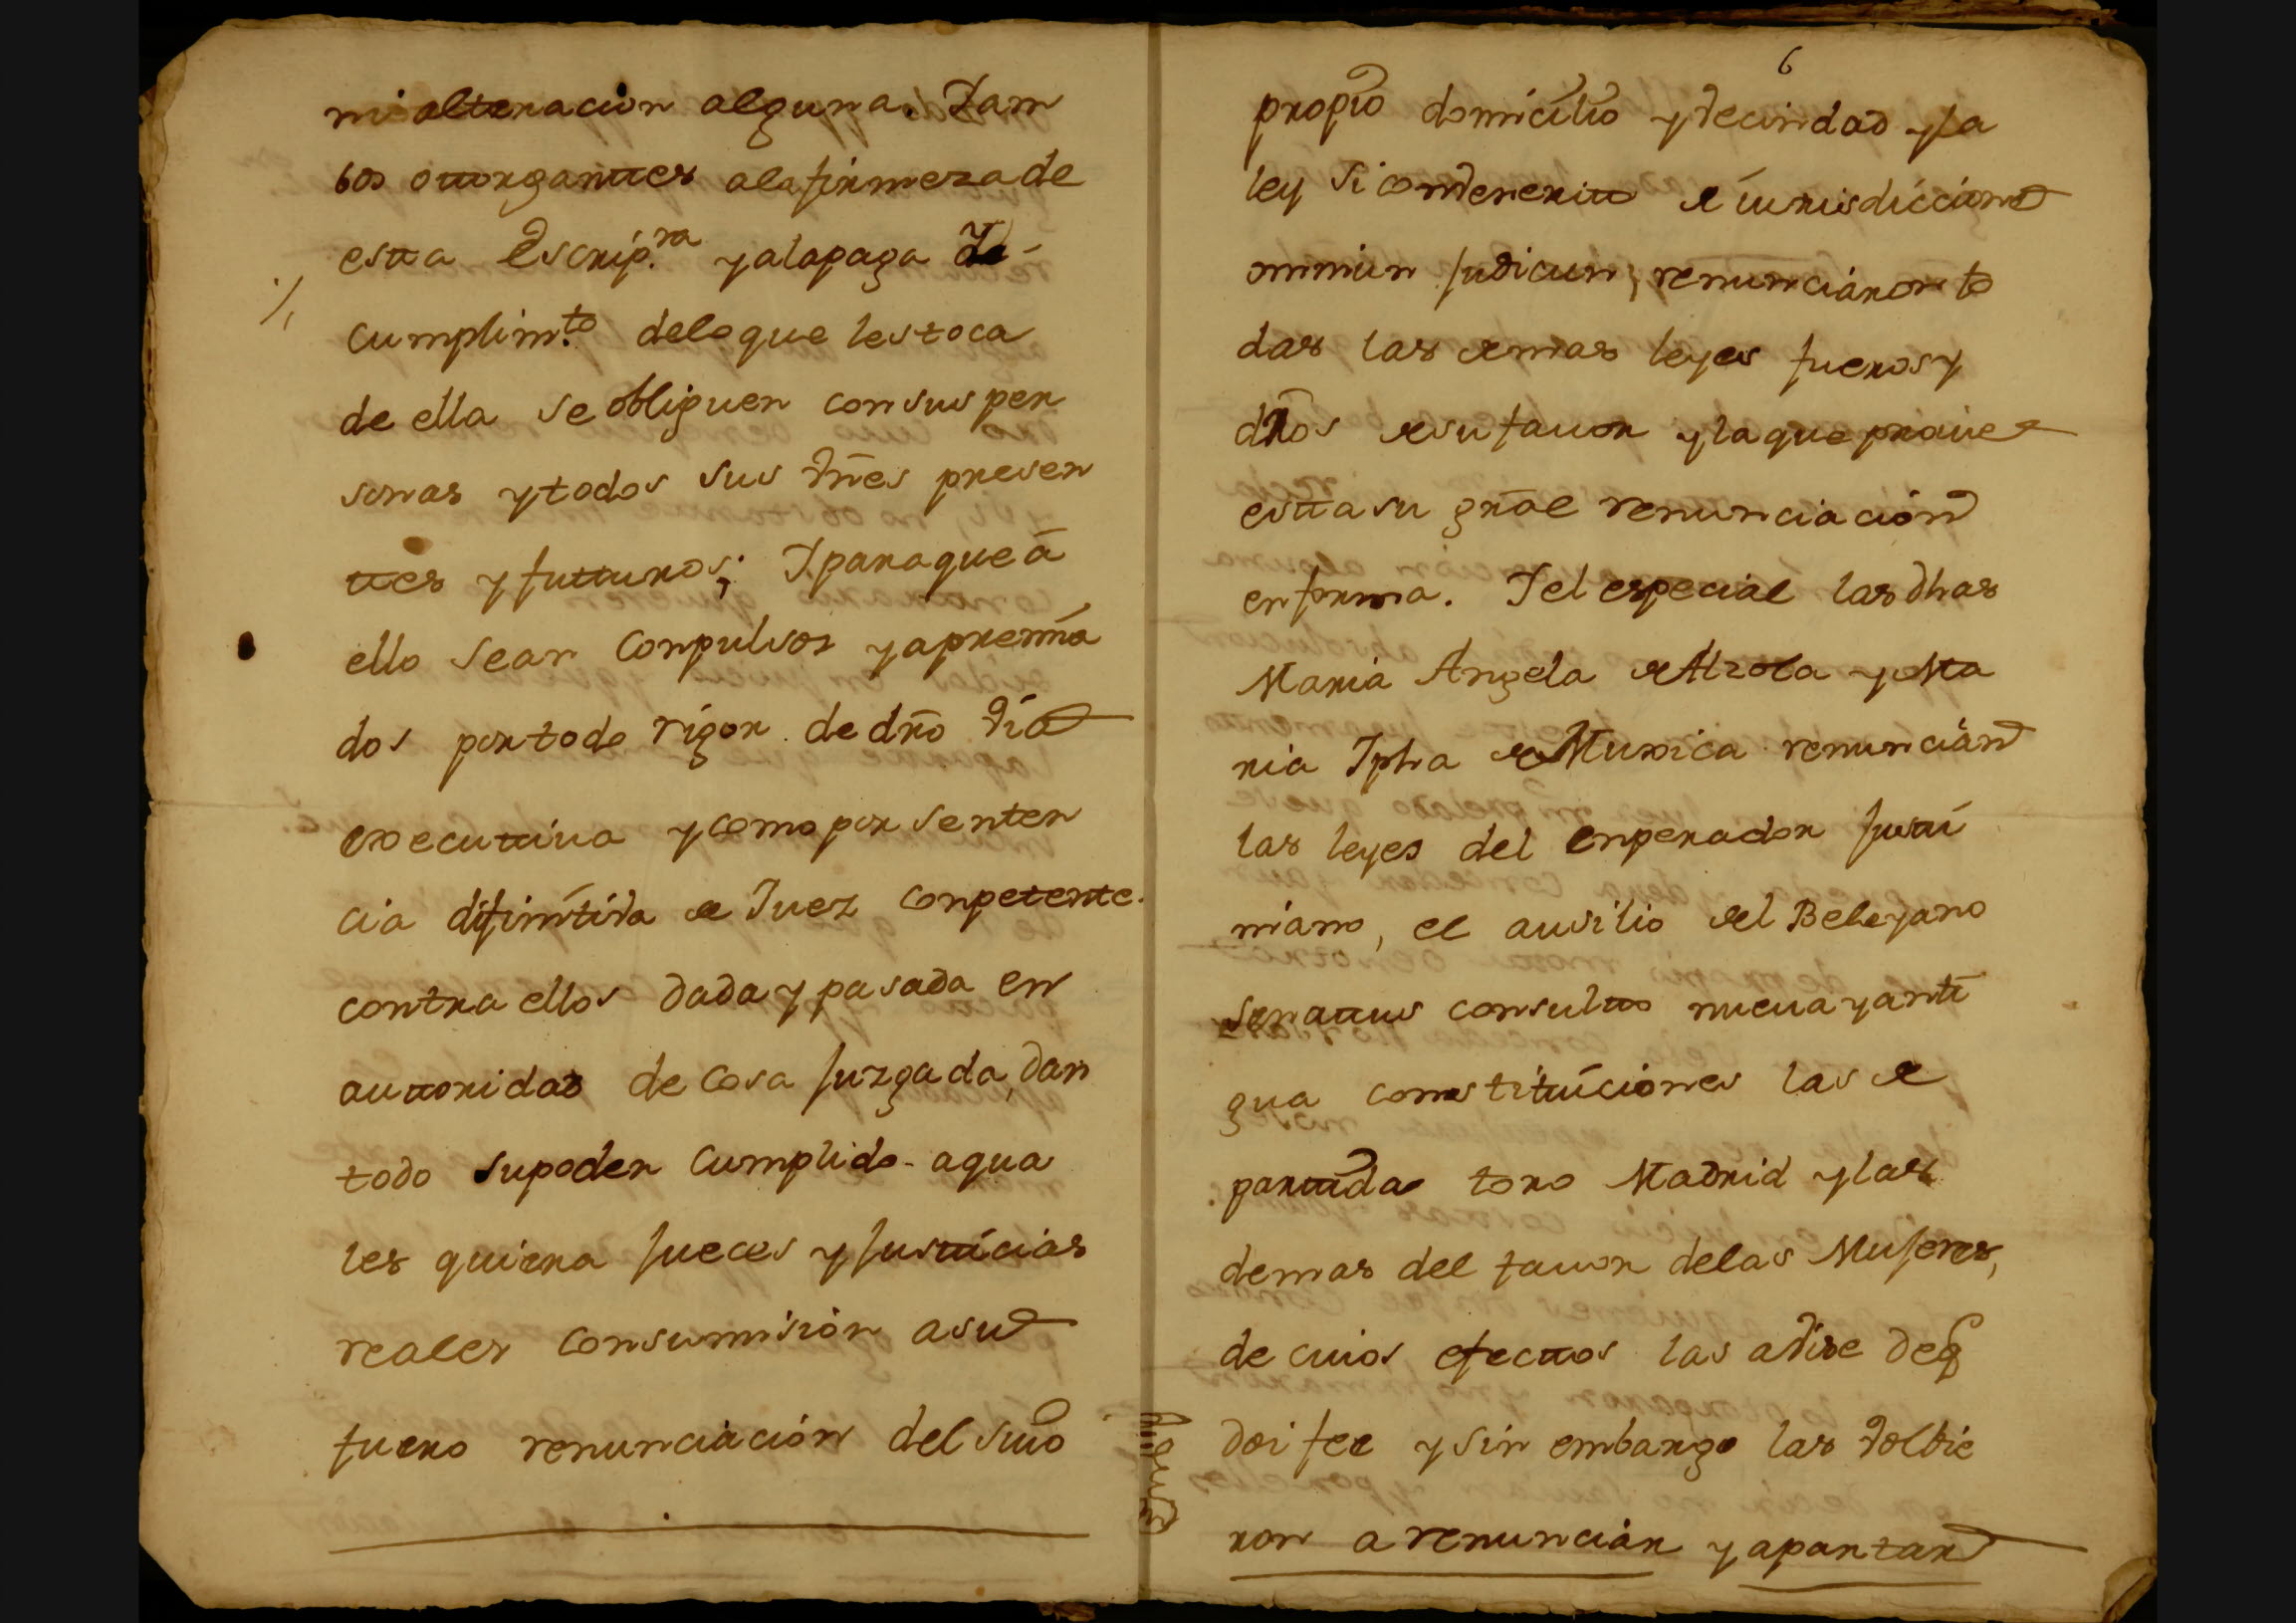 ni alteracion alguna. Yam
bos ottorganttes ala firmeza de
estta Escrip.ra y ala paga Y
cumplim.to delo que les toca
de ella se obliguen con sus per
sonas y todos sus vnēs presen
ttes y futturos; Y para que â
ello sean conpulsos y apremia
dos por todo rigor de dr̃o via
executtiua y como por senten
cia difinitiva de Juez conpetente
contra ellos dada y pasada en
auttoridad de cosa juzgada, dan
todo su poder cumplido a qua
les quiera jueces y justticias
reales con sumision a su
fuero renunciación del suio
6
propio domicilio y vecindad y la
ley si conveneritt de iurisdiccione
omniun judicun, renunciáron to
das las demas leyes fueros y
dr̃os de su fauor y la que proiue
estta su gr̃al renunciación
en forma. Y el especial las dhas
Maria Angela de Alzola y Ma
ria Ipha de Muxica renuncián
las leyes del enperador justi
niano, el auxilio del Beleyano
senattus consultto nueua y anti
gua constitutíciones las de
parttida toro Madrid y las
demas del fauor de las Mujeres,
de cuios efecttos las avise de q
doi fee y sin embargo las volvie
ron a renunciar y apartar